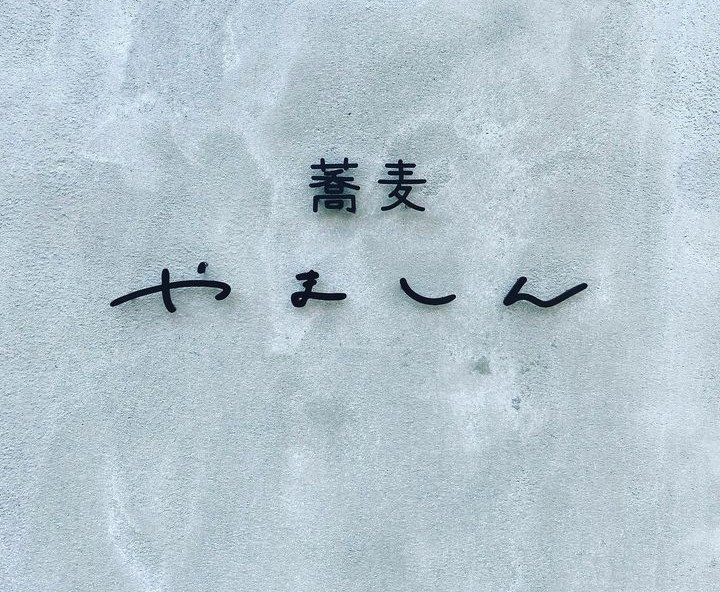 蕎麦
やましん